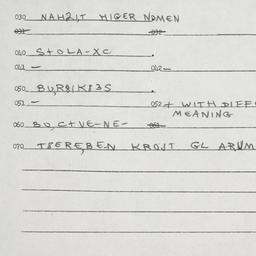 030 NAHZI,T HIGER NOMEN
031 032
040 STOLA-XC .
041 — 042 —
050 BU,R8IK83S .
051 — 052 + WITH DIFF
MEANING
060 BO,C+VE-NE- 061
070 T8EREBEN KROIT GL ARUM